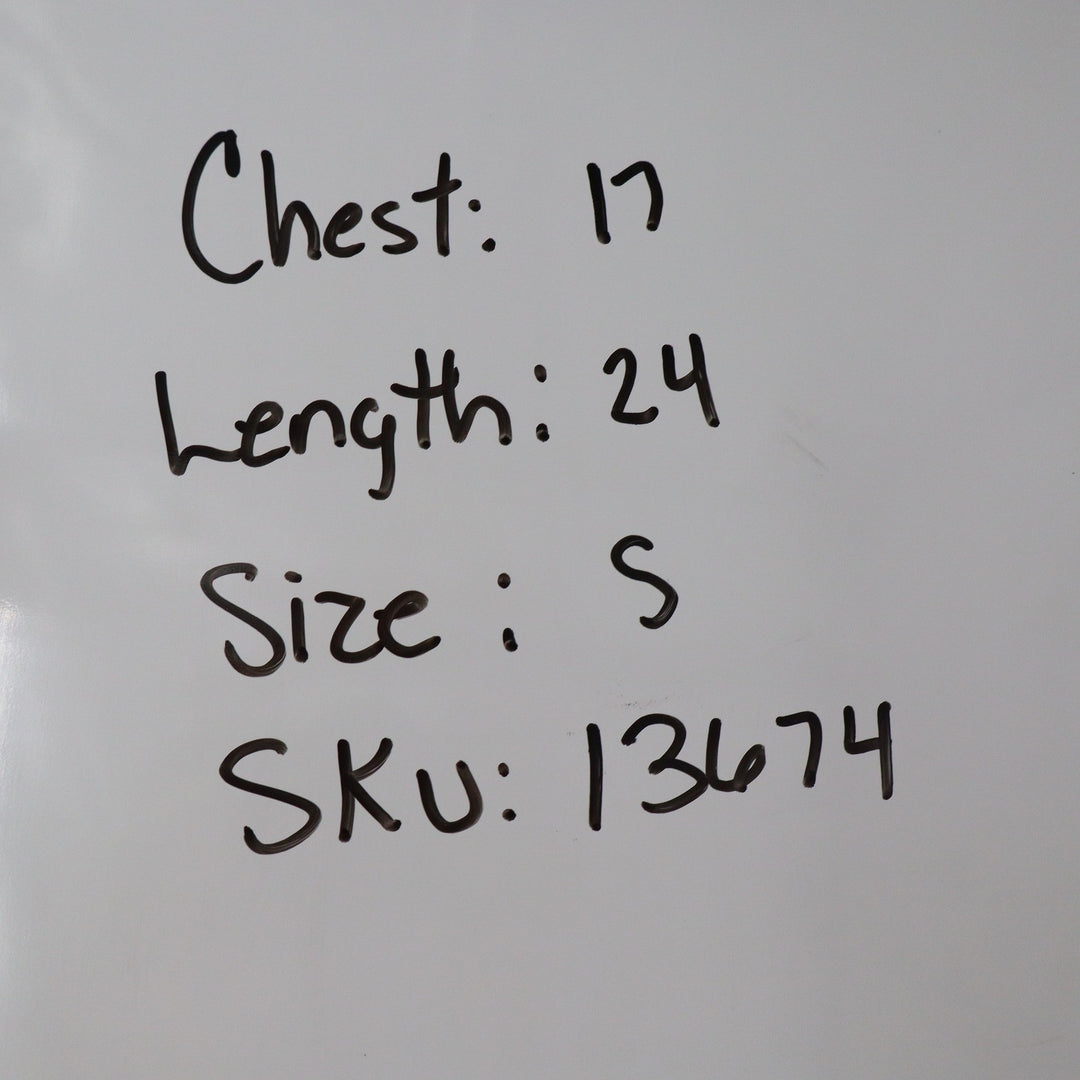 Chest: 17
Length: 24
Size: S
SKU: 13674